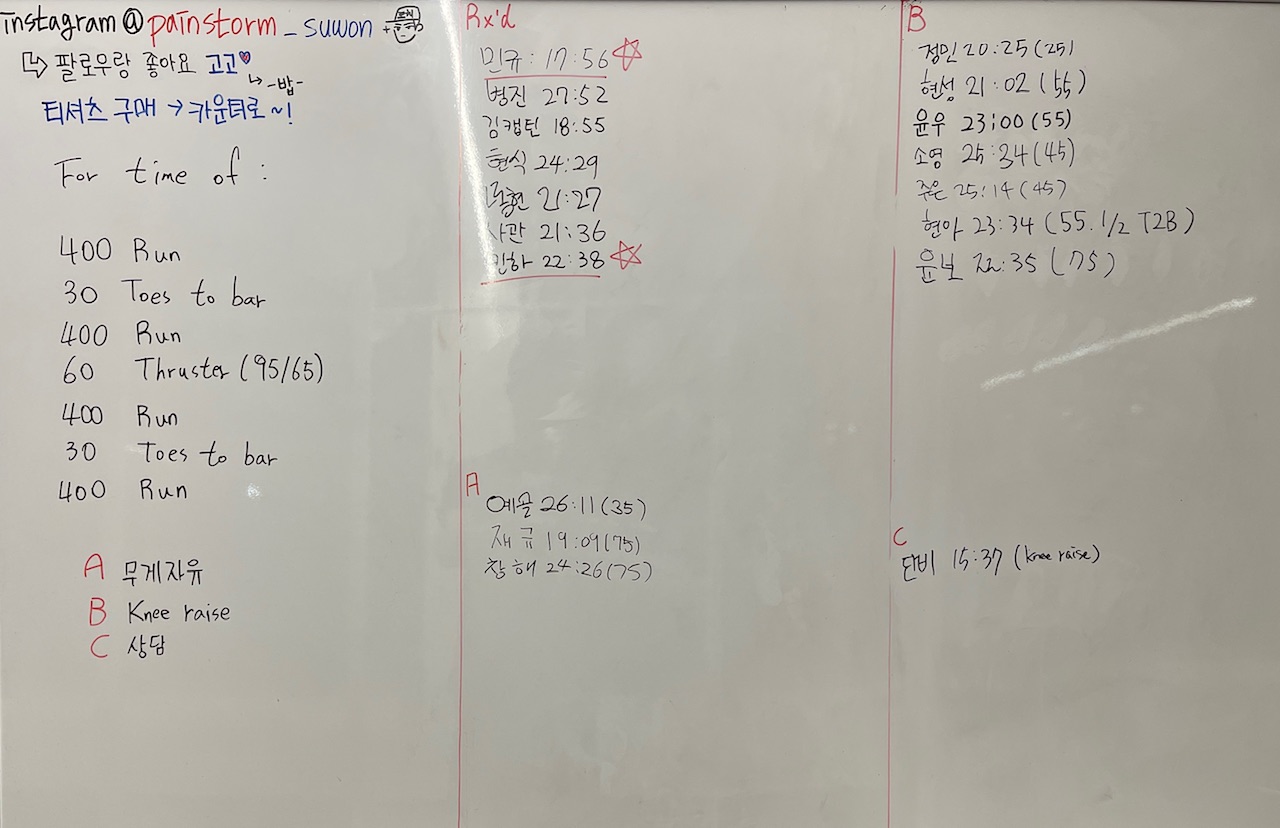 instagram@painstorm_suwon
팔로우랑 좋아요 고고
-밥-
티셔츠 구매 → 카운터로~!
For time of :
400 Run
30 Toes to bar
400 Run
60 Thruster (95/65)
400 Run
30 Toes to bar
400 Run
A 무게자유
B Knee raise
C 상담
Rx'd
민규: 17:56
병진 27:52
김캡틴 18:55
현식 24:29
21:27
사관 21:36
민하 22:38
A
예슬 26:11(35)
재규 19:09(75)
창해 24:26(75)
B
정민 20:25(25)
현성 21:02(55)
윤우 23:00(55)
소영 25:34(45)
주은 25:14(45)
현아 23:34 (55. 1/2 T2B)
윤보 22:35 (75)
C
단비 15:37 (knee raise)